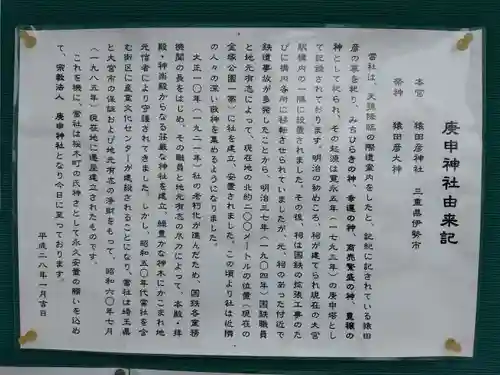 庚申神社由来記
本宮　猿田彦神社　三重県伊勢市
祭神　猿田彦大神
当社は、天孫降臨の際道案内をしたと、記紀に記されている猿田
彦の尊を祀り、みちひらきの神、幸運の神、商売繁盛の神、豊穣の
神として祀られ、その起源は寛永五年(一七九三年)の庚申塔とし
て記録されております。明治の初めころ、祠が建てられ現在の大宮
駅構内の一隅に設置されました。その後、祠は国鉄の拡張工事のた
びに構内各所に移転させられていましたが、元、祠のあった付近で
鉄道事故が多発したことから、明治三七年(一九〇四年)国鉄職員
と地元有志によって、現在地の北約二〇〇メートルの位置(現在の
金塚公園一帯)に社を建立、安置されました。この頃より社は近隣
の人々の深い敬神を集めるようになりました。
大正一〇年(一九二一年)社の老朽化が進んだため、国鉄各業務
機関の長をはじめ、その職員と地元有志の尽力によって、本殿・拝
殿・神楽殿からなる荘厳な神社を建立、緑豊かな神木にかこまれ地
元信者により守護されてきました。しかし、昭和五〇年代当社を含
む街区に産業文化センターが建設されることになり、当社は埼玉県
と大宮市の保証および地元有志の浄財をもって、昭和六〇年七月
(一九八五年)現在地に遷座建立されたものです。
これを機に、当社は桜木町の氏神さまとして永久安置の願いを込め
て、宗教法人　庚申神社となり今日に至っております。
平成二八年一月吉日